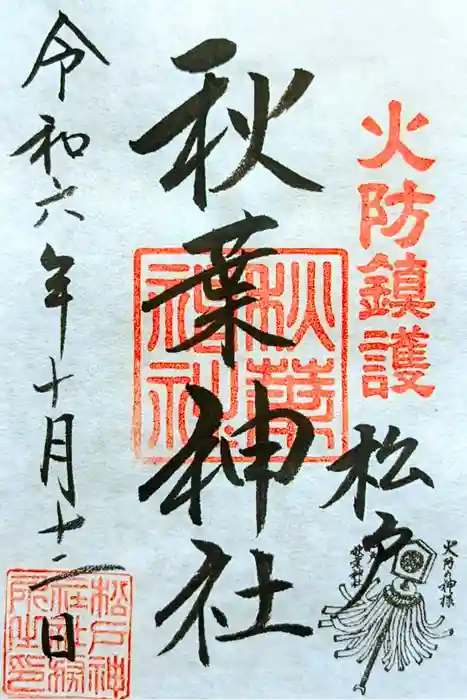 火防鎮護
松戸
火防の神様
秋葉神社
秋葉神社
令和六年十月十二日
松戸神
社社務
所之印